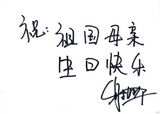 祝：祖国母亲
生日快乐